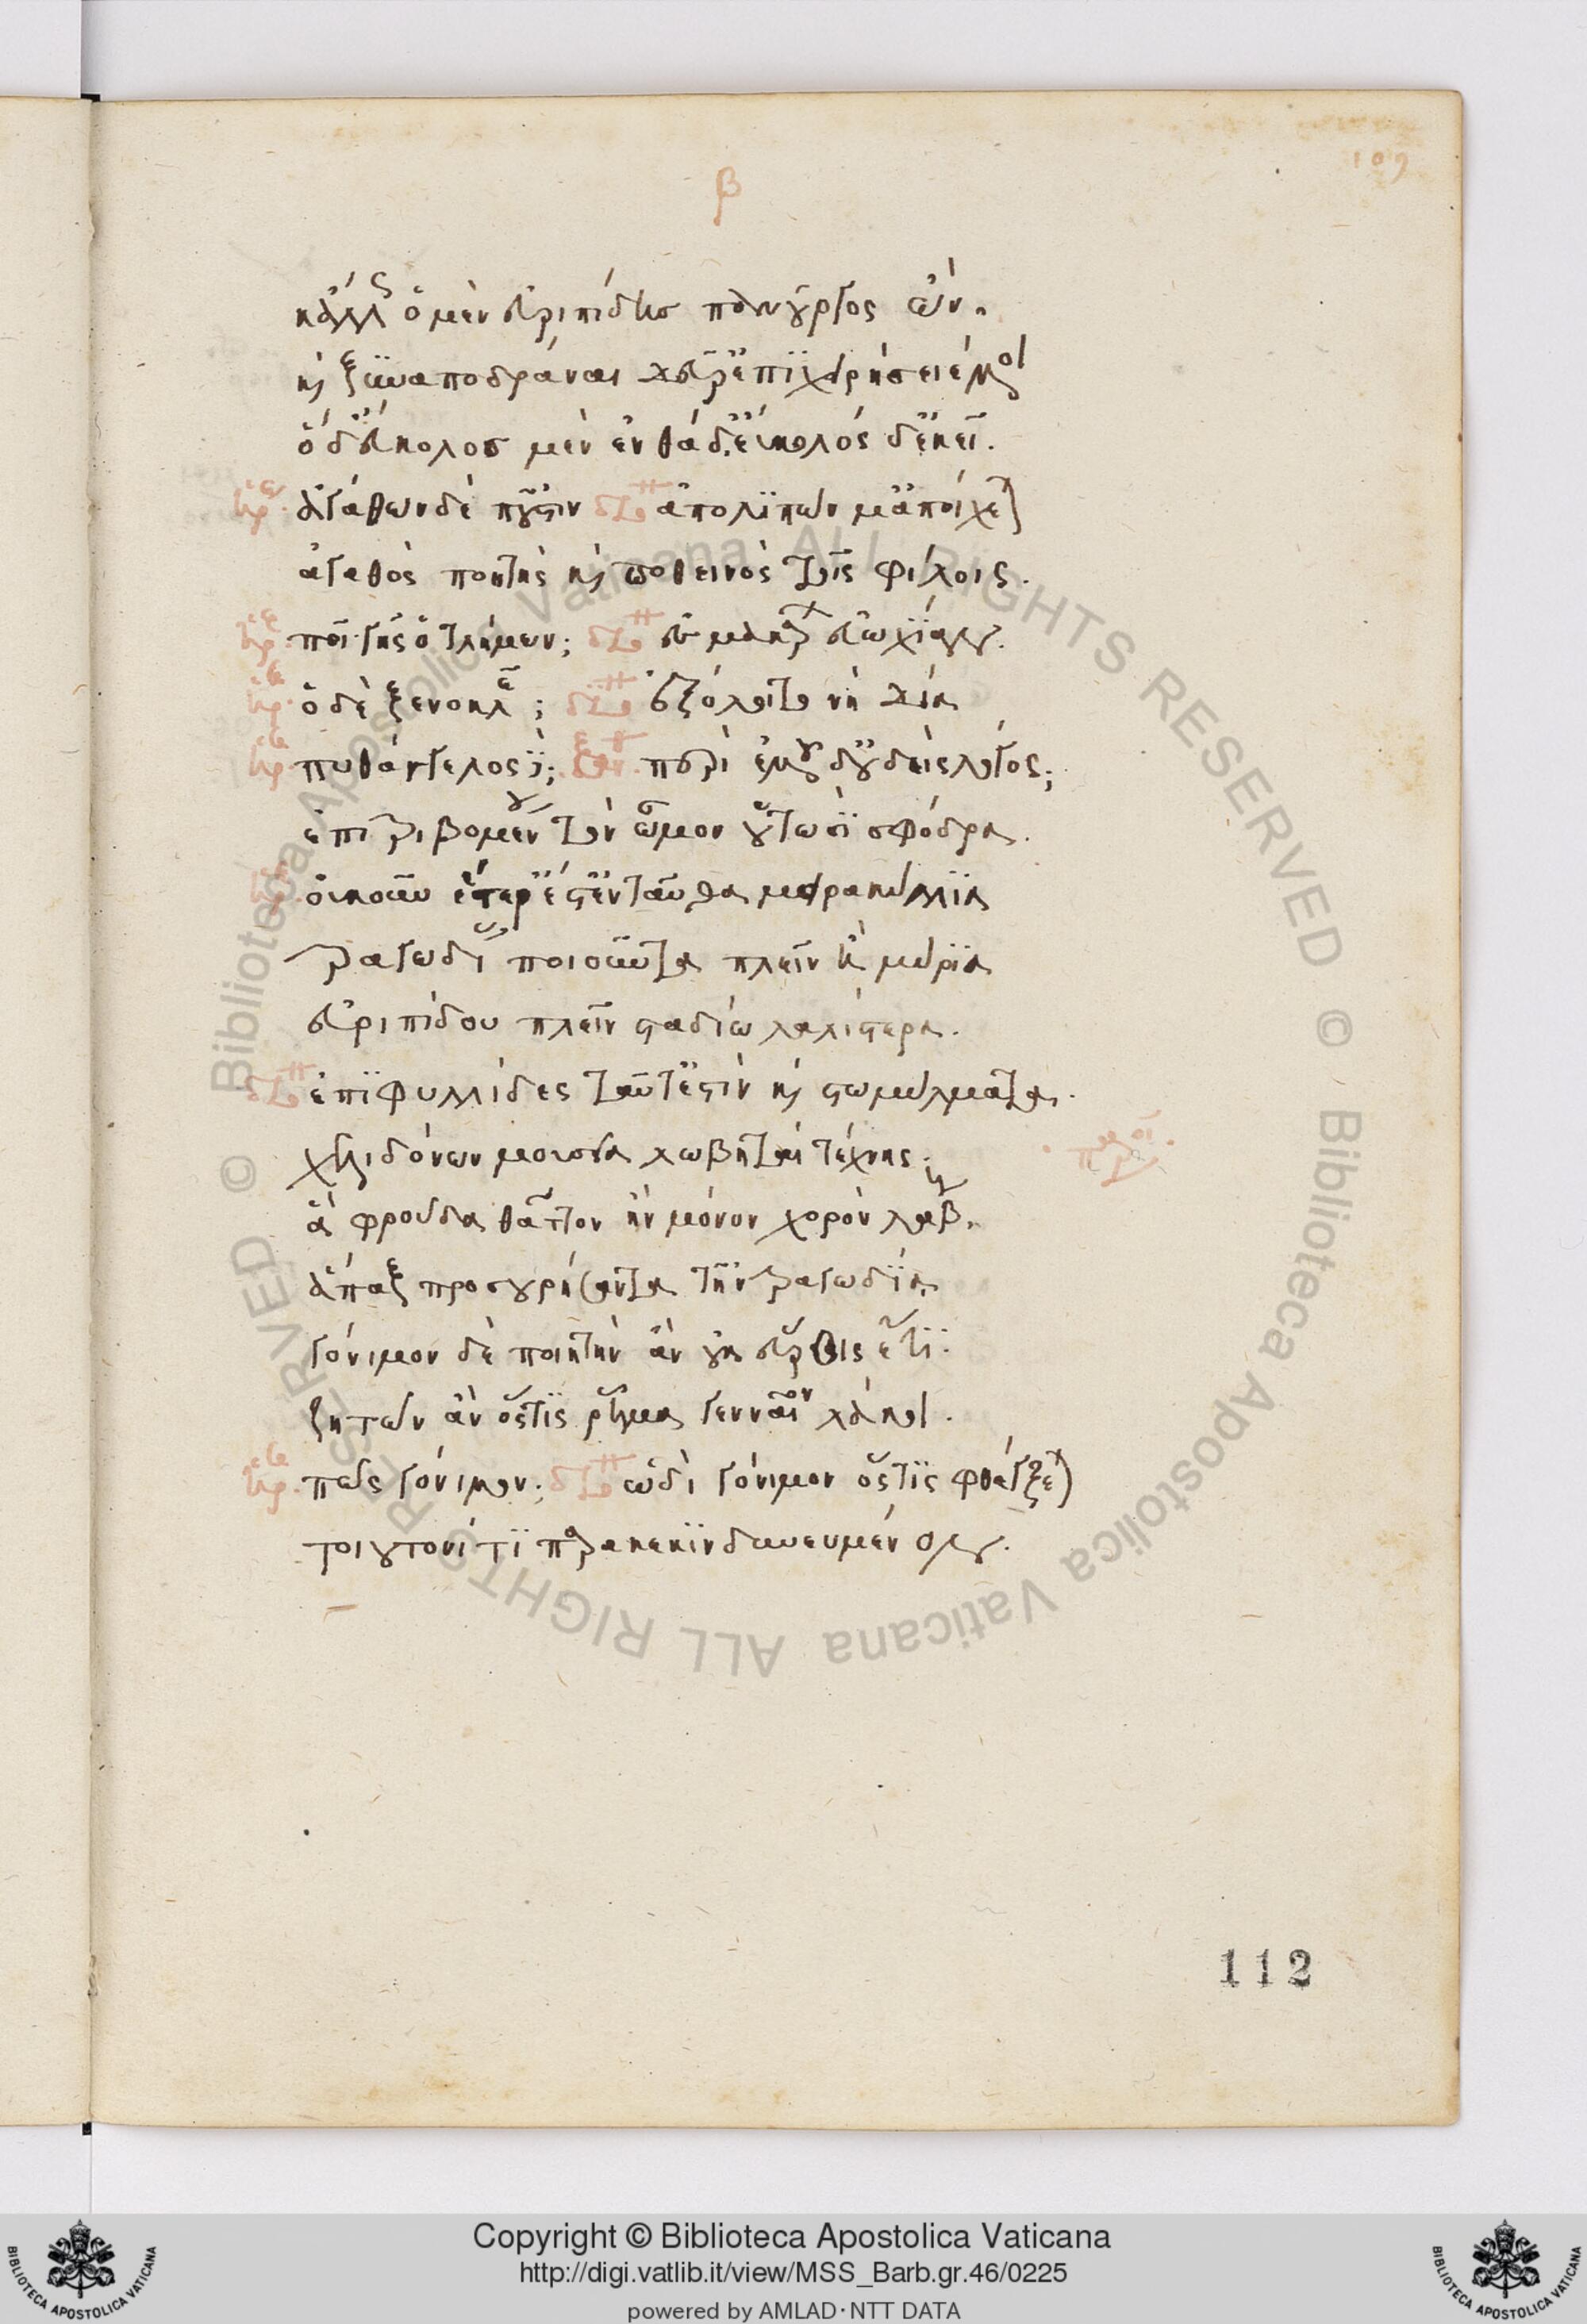 109
β
κἄλλως ὁ μὲν εὐριπίδης πανοῦργος ὤν.
καὶ ξυναποδράναι δεῦρ' ἐπιχειρήσειέ μοι
ὁ δ' εὔκολος μὲν ἐνθάδ' εὔκολος δ' ἐκεῖ.
ἡρ. ἀγάθων δὲ ποῦ 'στιν διο ἀπολιπών μ' ἀποίχεται
ἀγαθὸς ποητὴς καὶ ποθεινὸς τοῖς φίλοις.
ἡρ. ποῖ γῆς ὁ τλήμων; διο ἐς μακάρων εὐωχίαν.
ἡρ. ὁ δὲ ξενοκλέης; διο ἐξόλοιτο νὴ δία
ἡρ. πυθάγγελος δέ; ξαν. περὶ ἐμοῦ δ' οὐδεὶς λόγος;
ἐπιτριβομένου τὸν ὦμον οὑτωσὶ σφόδρα.
ἡρ. οὔκουν ἕτερ' ἔστ' ἐνταῦθα μειρακύλλια
τραγωδίας ποιοῦντα πλεῖν ἢ μύρια
εὐριπίδου πλεῖν σταδίω λαλίστερα.
διο ἐπιφυλλίδες ταῦτ' ἐστὶν καὶ στωμύλματα.
χελιδόνων μουσεῖα λωβηταὶ τέχνης.
ἃ φροῦδα θᾶττον ἢν μόνον χορὸν λάβη.
ἅπαξ προσουρήσαντα τῆ τραγωδία
γόνιμον δὲ ποιητὴν ἂν οὐχ εὕροις ἔτι.
ζητῶν ἂν ὅστις ῥῆμα γενναῖον λάκοι.
ἡρ. πῶς γόνιμον; διο ὡδὶ γόνιμον ὅστις φθέγξεται
τοιουτονί τι παρακεκινδυνευμένον.
112
Copyright © Biblioteca Apostolica Vaticana
http://digi.vatlib.it/view/MSS_Barb.gr.46/0225
powered by AMLAD·NTT DATA
BIBLIOTECA APOSTOLICA VATICANA
BIBLIOTECA APOSTOLICA VATICANA
© Biblioteca Apostolica Vaticana ALL RIGHTS RESERVED © Biblioteca Apostolica Vaticana ALL RIGHTS RESERVED